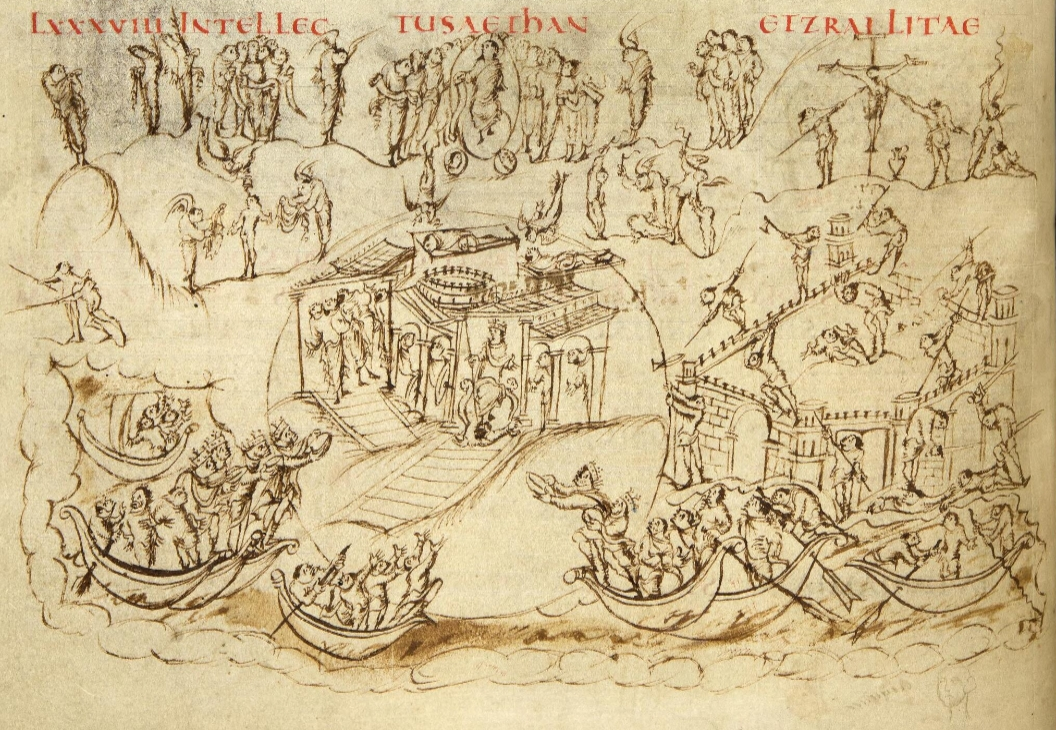 LXXXVIII INTELLEC TUSAETHAN ETZRALLITAE